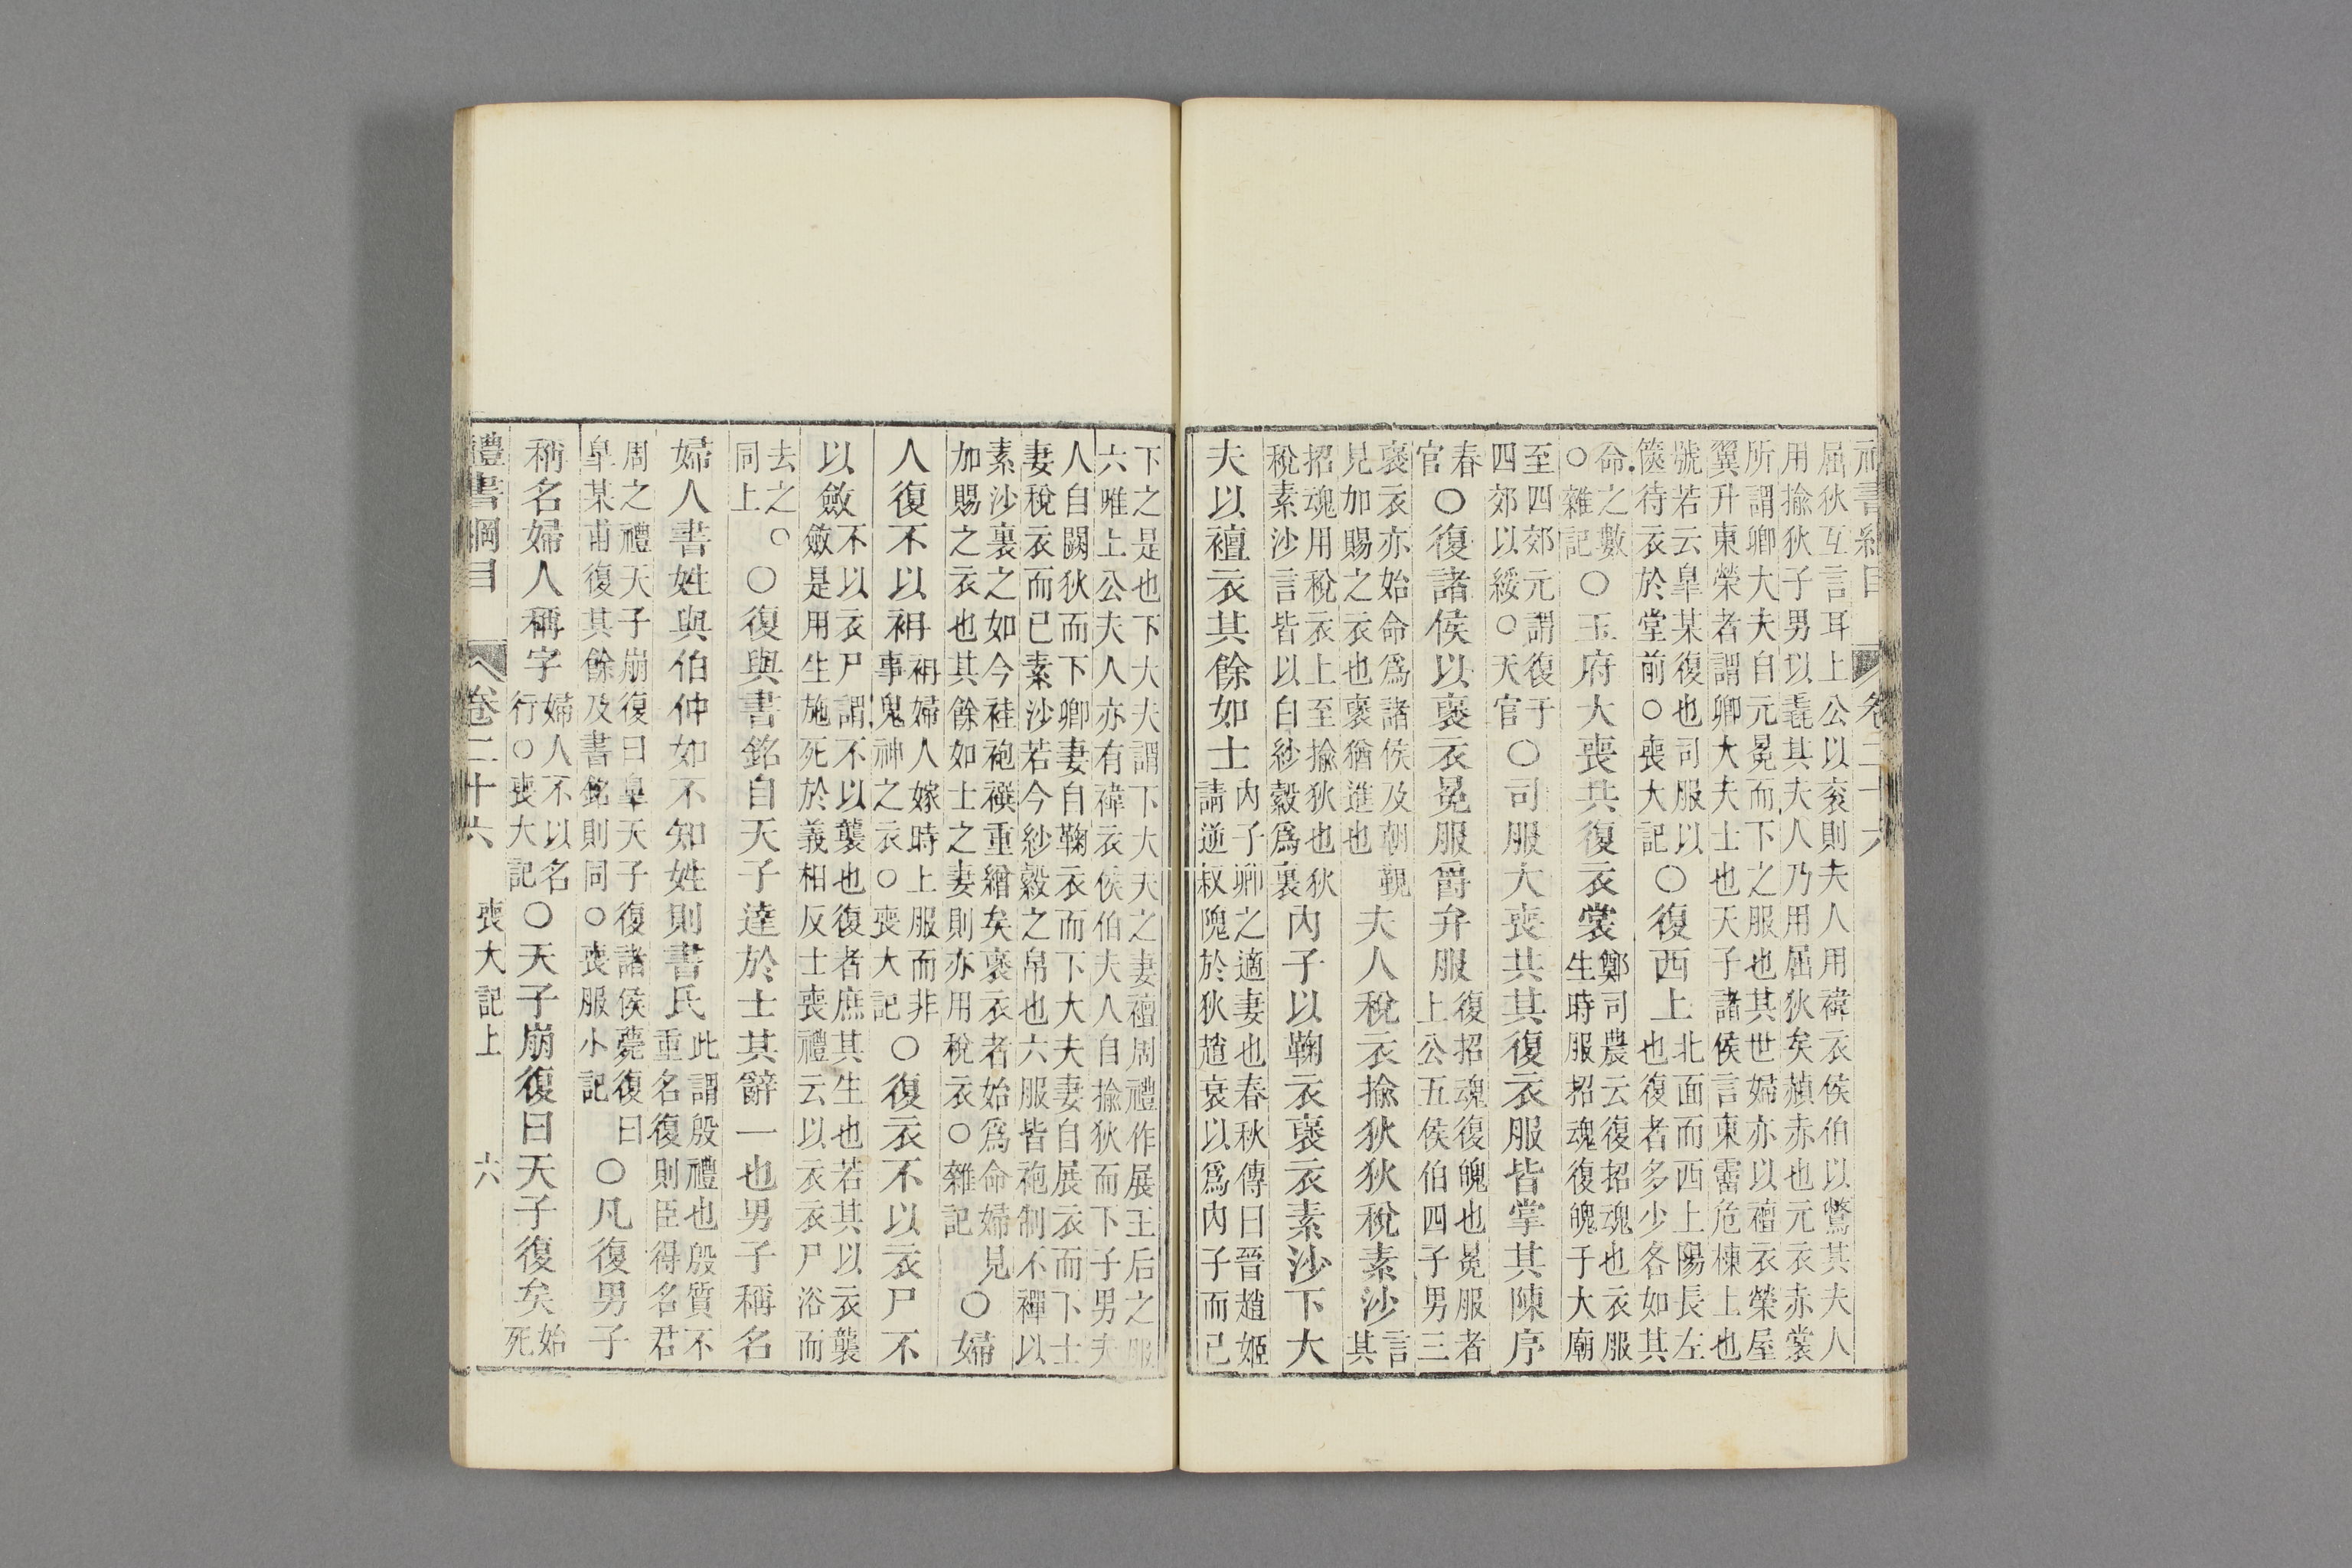 屈狄互言耳上公以衮則夫人用褘衣侯伯以鷩其夫人
用揄狄子男以毳其夫人乃用屈狄矣赬赤也元衣赤裳
所謂卿大夫自元冕而下之服也其世婦亦以襢衣榮屋
翼升東榮者謂卿大夫士也天子諸侯言東霤危棟上也
號若云臯某復也司服以
篋待衣於堂前○喪大記
○復西上
北面而西上陽長左
也復者多少各如其
命之數
○雜記
○玉府大喪共復衣裳
鄭司農云復招魂也衣服
生時服招魂復魄于大廟
至四郊元謂復于
四郊以綏○天官
○司服大喪共其復衣服皆掌其陳序
春
官
○復諸侯以襃衣冕服爵弁服
復招魂復魄也冕服者
上公五侯伯四子男三
襃衣亦始命爲諸侯及朝覲
見加賜之衣也襃猶進也
夫人稅衣揄狄狄稅素沙
言
其
招魂用稅衣上至揄狄也狄
稅素沙言皆以白紗縠爲裏
內子以鞠衣襃衣素沙下大
夫以襢衣其餘如士
內子卿之適妻也春秋傳曰晉趙姬
請逆叔隗於狄趙衰以爲內子而已
下之是也下大夫謂下大夫之妻襢周禮作展王后之服
六唯上公夫人亦有褘衣侯伯夫人自揄狄而下子男夫
人自闕狄而下卿妻自鞠衣而下大夫妻自展衣而下士
妻稅衣而已素沙若今紗縠之帛也六服皆袍制不襌以
素沙裏之如今袿袍襈重繒矣襃衣者始爲命婦見
加賜之衣也其餘如士之妻則亦用稅衣○雜記
○婦
人復不以袡
袡婦人嫁時上服而非
事鬼神之衣○喪大記
○復衣不以衣尸不
以斂
不以衣尸謂不以襲也復者庶其生也若其以衣襲
斂是用生施死於義相反士喪禮云以衣衣尸浴而
去之○
同上
○復與書銘自天子達於士其辭一也男子稱名
婦人書姓與伯仲如不知姓則書氏
此謂殷禮也殷質不
重名復則臣得名君
周之禮天子崩復曰臯天子復諸侯薨復曰
臯某甫復其餘及書銘則同○喪服小記
○凡復男子
稱名婦人稱字
婦人不以名
行○喪大記
○天子崩復曰天子復矣
始
死
禮書綱目 卷二十六 喪大記上 六